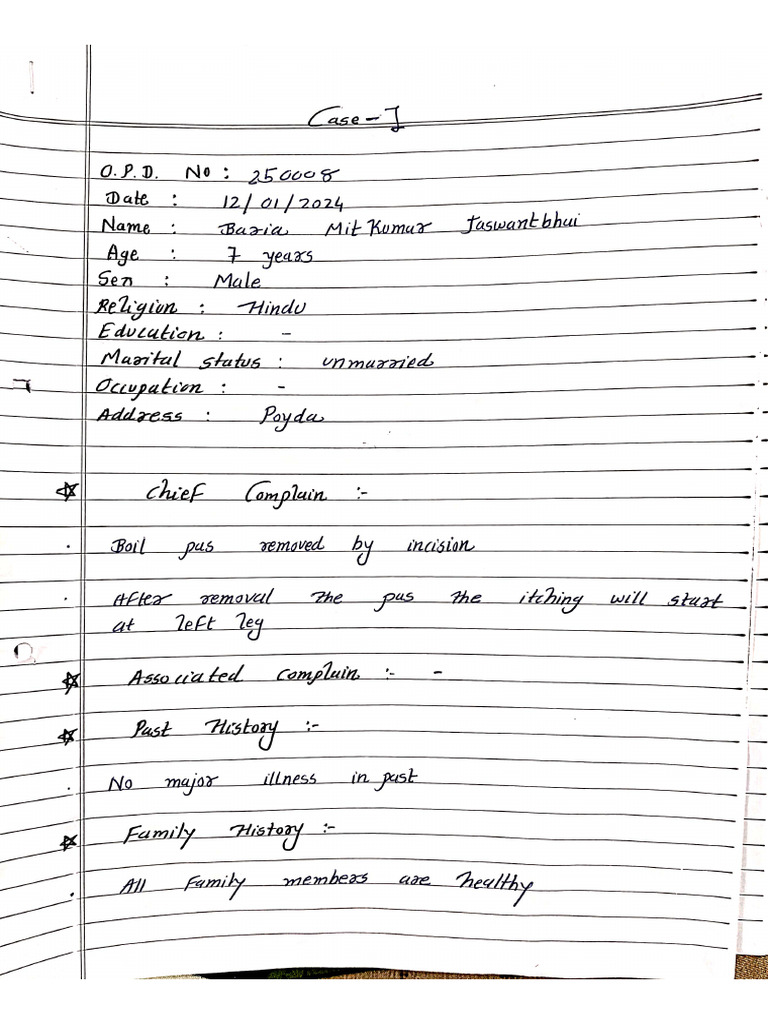 Case - I
O.P.D. No : 250008
Date : 12/01/2024
Name : Baria Mit Kumar Jaswantbhui
Age : 7 years
Sex : Male
Religion : Hindu
Education : -
Marital status : unmarried
Occupation : -
Address : Poyda
☆ Chief Complain :-
. Boil pus removed by incision
. After removal the pus the itching will start
at left leg
☆ Associated complain :- -
☆ Past History :-
. No major illness in past
☆ Family History :-
. All Family members are healthy